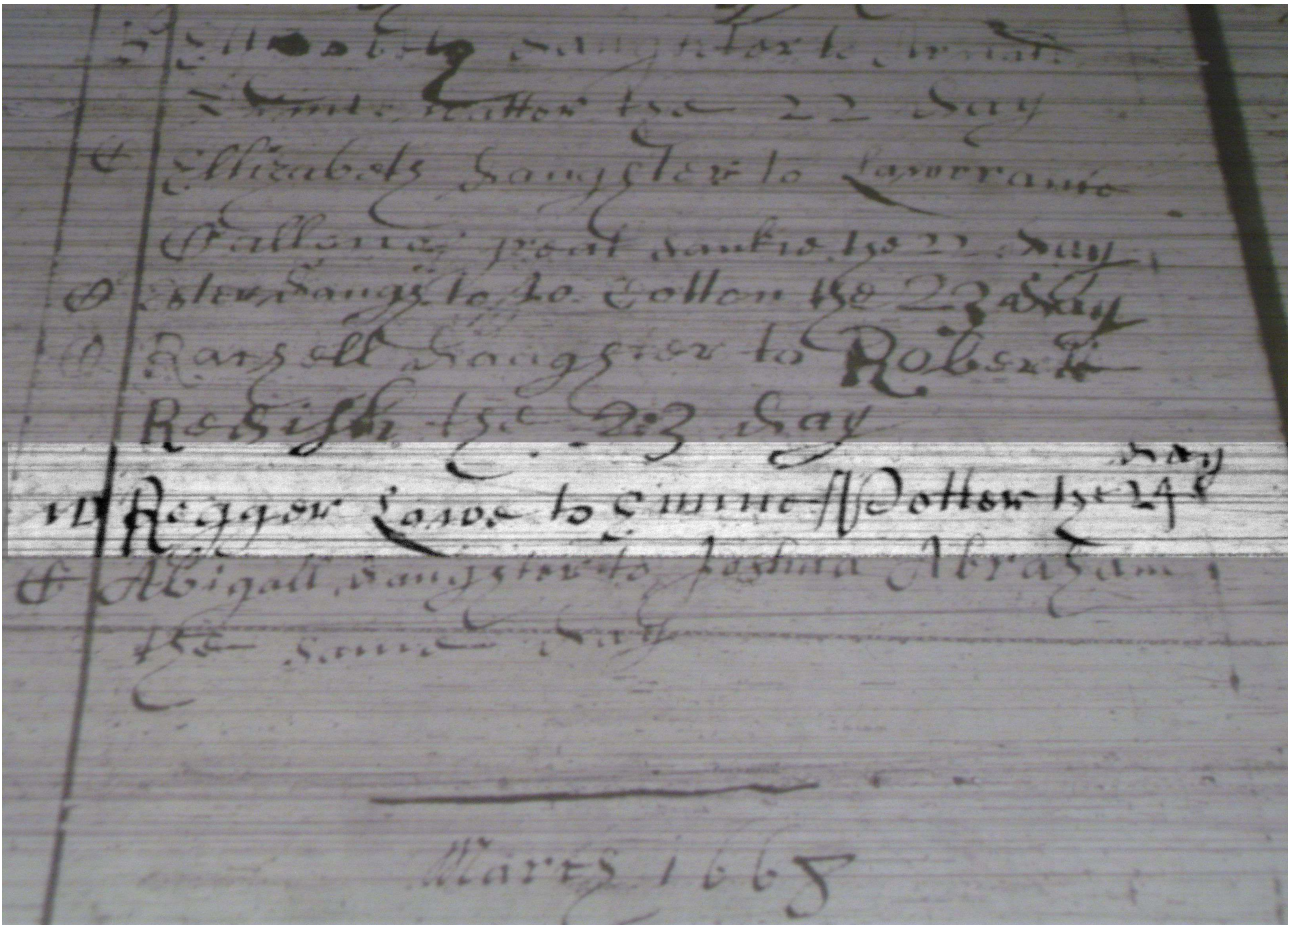 daughter to
the 22 day
C Ellizabeth daughter to Lawrrance
great sankie the 22 day
Ester daugh to Jo Cotton the 23 day
Rachell daughter to Robert
Redish the 23 day
day
m Regger Lowe to Emme Potter the 24
C Abigall daughter to Joshua Abraham
the same day
March 1668